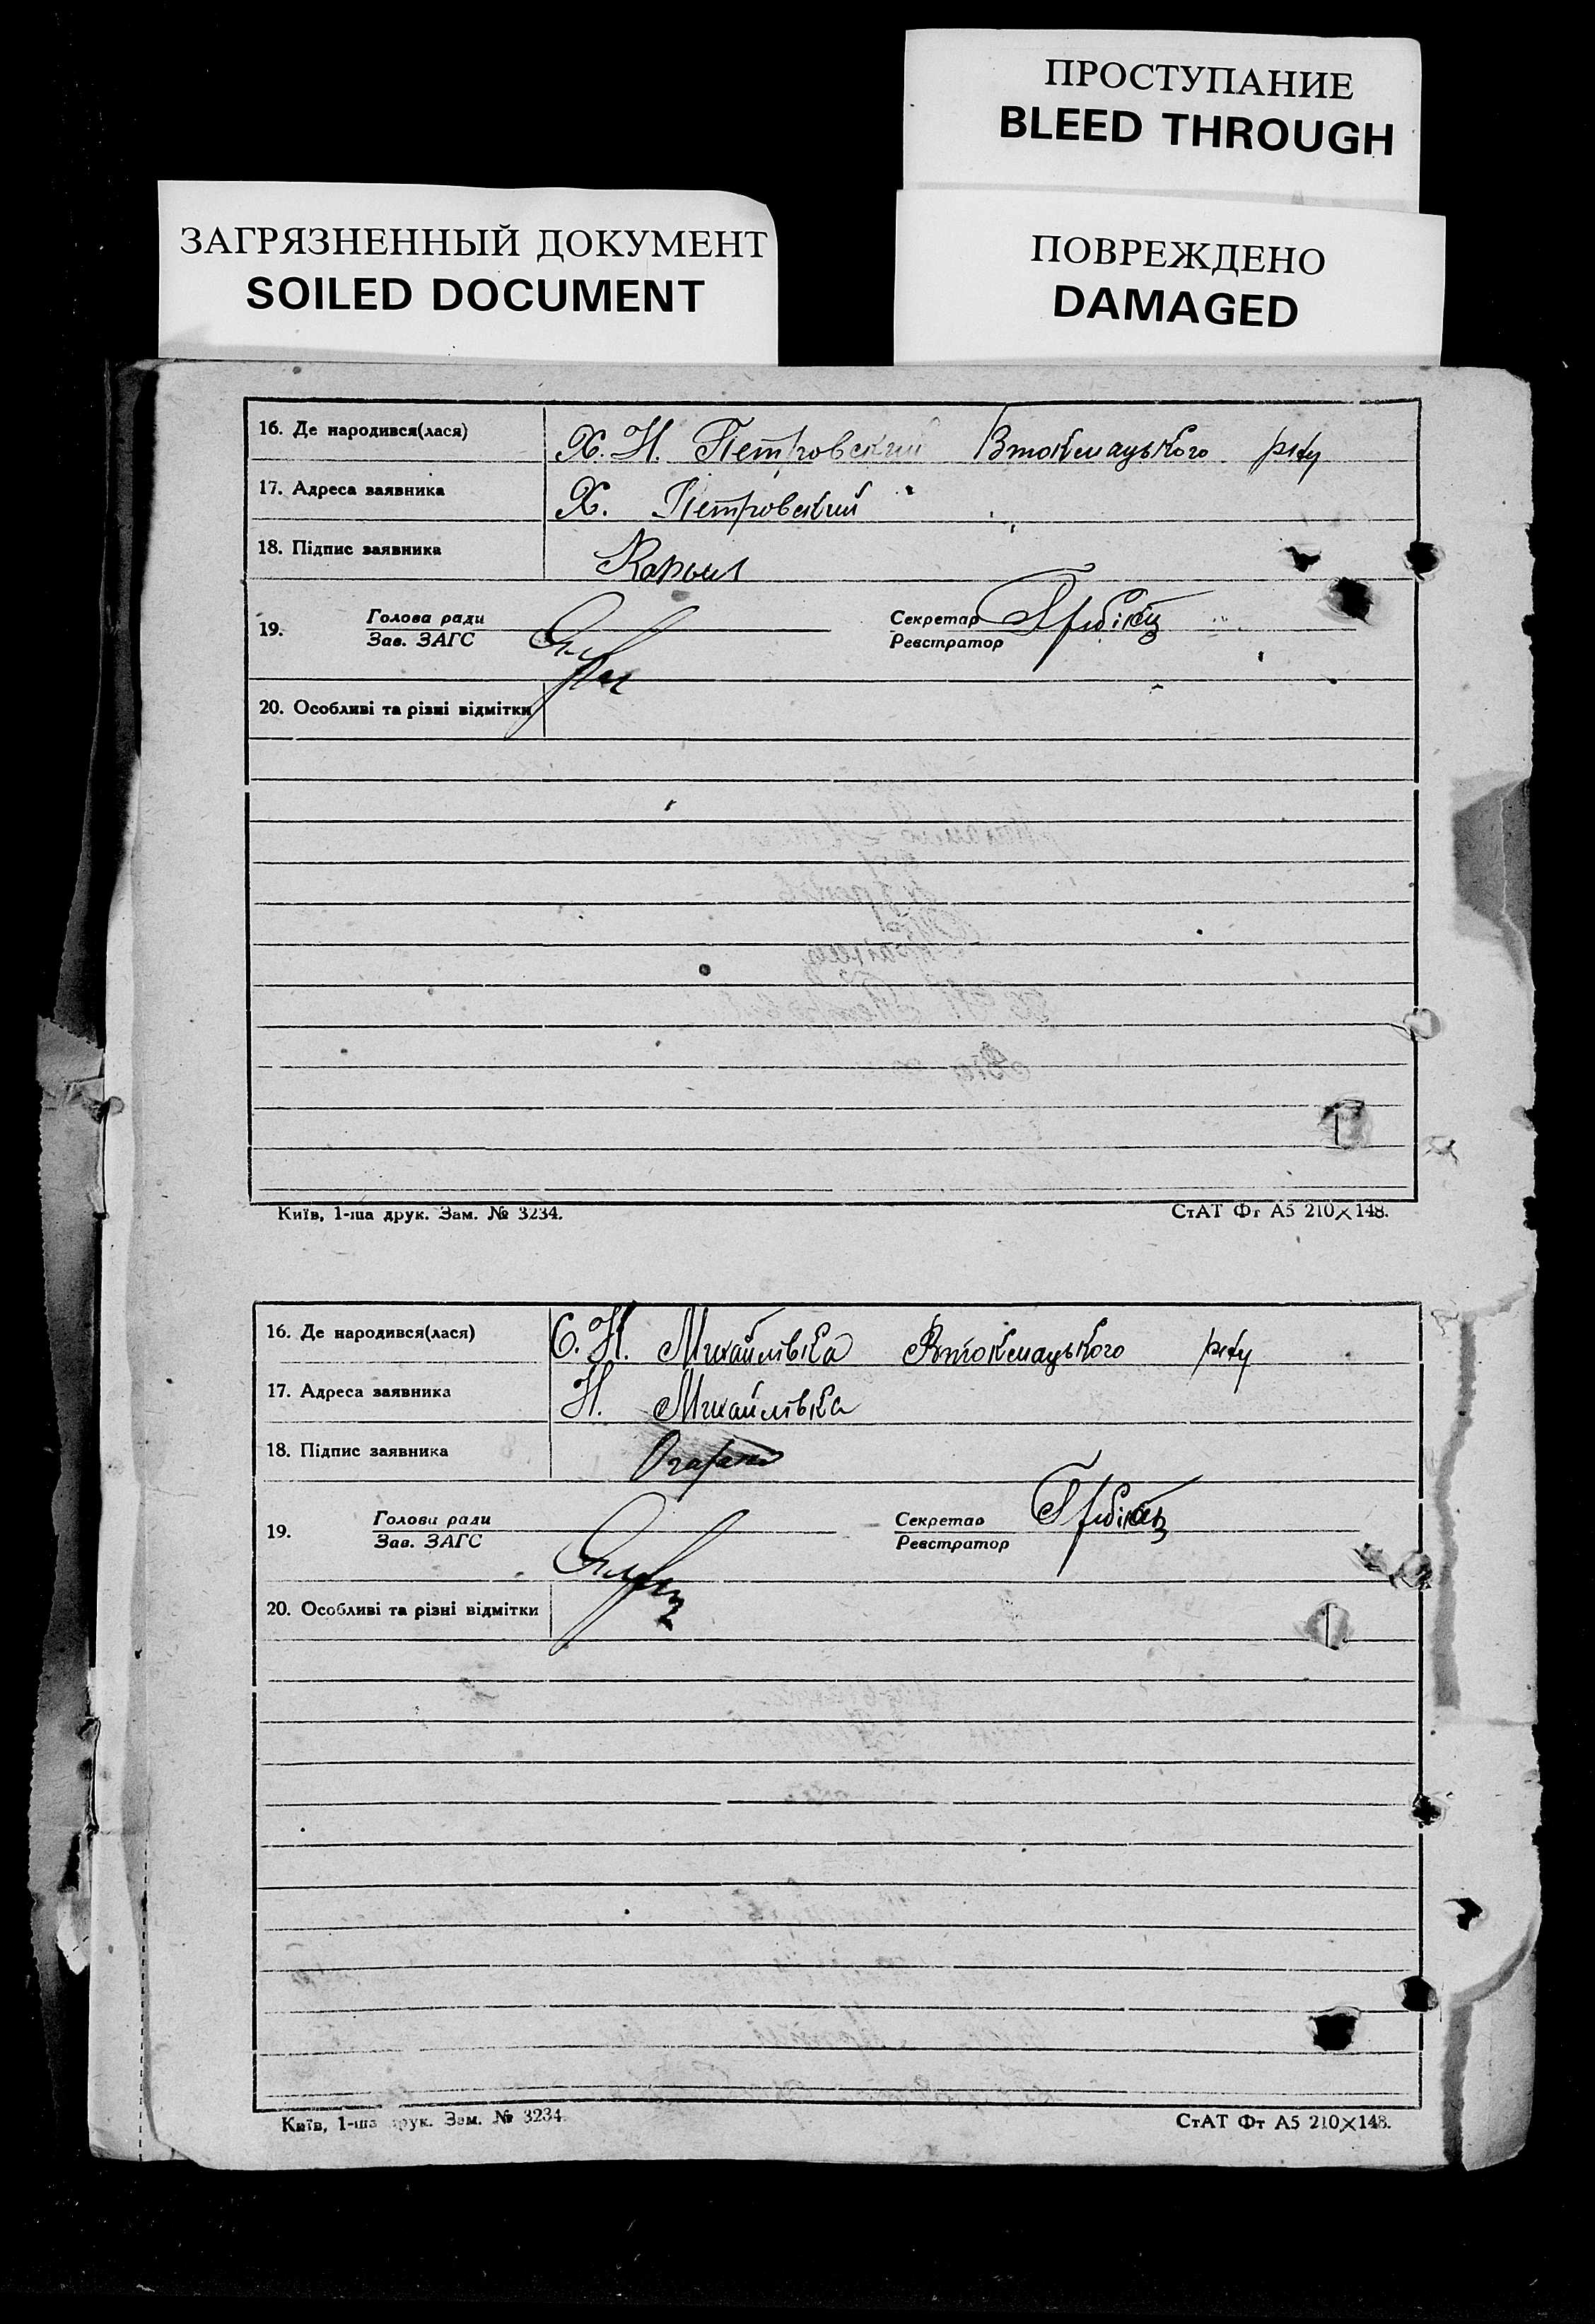 ПРОСТУПАНИЕ
BLEED THROUGH
ЗАГРЯЗНЕННЫЙ ДОКУМЕНТ
SOILED DOCUMENT
ПОВРЕЖДЕНО
DAMAGED
16. Де народився(лася) Х. Н. Петровский Втокмацького р-ну
17. Адреса заявника Х. Петровский
18. Підпис заявника
19. Голова ради Секретар
Зав. ЗАГС Реєстратор
20. Особливі та різні відмітки
Київ, 1-ша друк. Зам. № 3234. СтАТ Фт А5 210×148.
16. Де народився(лася) С. Н. Михайлівка Втокмацького р-ну
17. Адреса заявника Н. Михайлівка
18. Підпис заявника
19. Голова ради Секретар
Зав. ЗАГС Реєстратор
20. Особливі та різні відмітки
Київ, 1-ша друк. Зам. № 3234. СтАТ Фт А5 210×148.